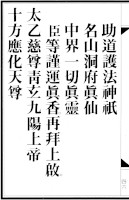 助道護法神祇
名山洞府眞仙
中界一切眞靈
臣等謹運眞香再拜上啟
太乙慈尊青玄九陽上帝
十方應化天尊